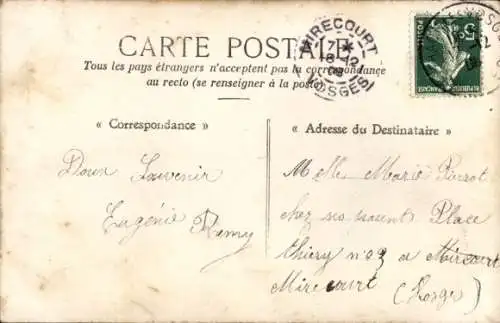 CARTE POSTALE
Tous les pays étrangers n'acceptent pas la correspondance
au recto (se renseigner à la poste)
MIRECOURT
VOSGES
5c
REPUBLIQUE FRANÇAISE
« Correspondance »
Doux Souvenir
Eugénie Remy
« Adresse du Destinataire »
Melle Marie
chez Place
thiery a Mircourt
Mirecourt
(Vosges)